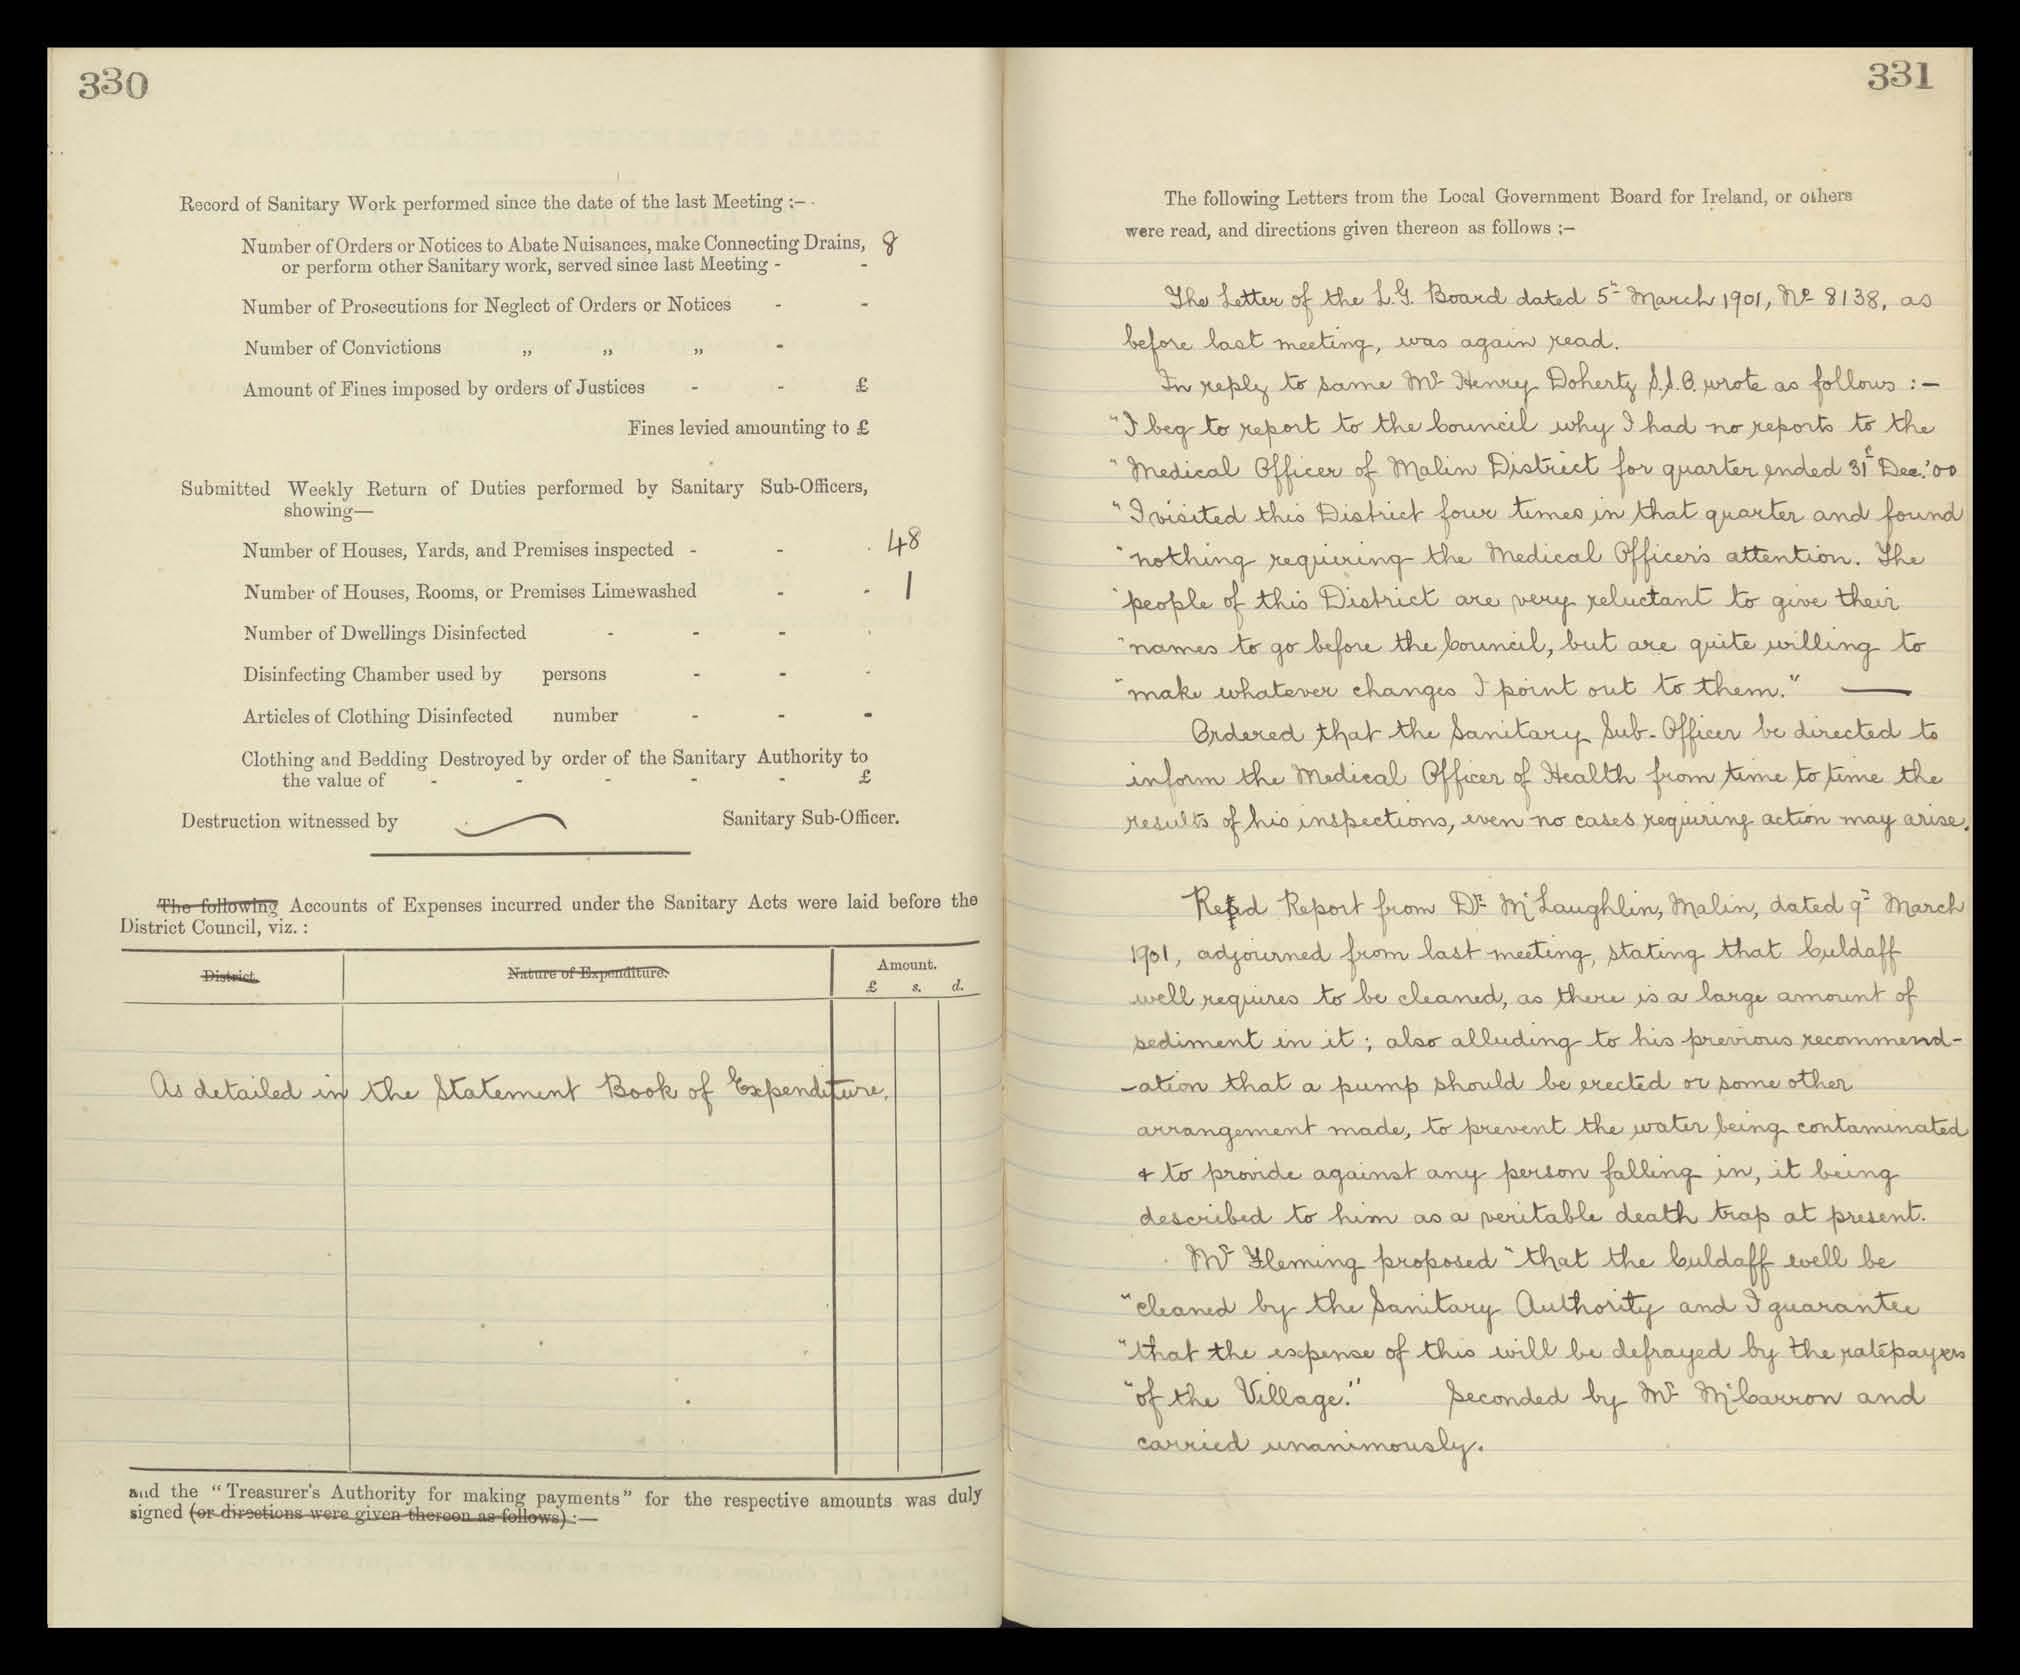 330
Record of Sanitary Work performed since the date of the last Meeting :-
Number of Orders or Notices to Abate Nuisances, make Connecting Drains, 8
or perform other Sanitary work, served since last Meeting - -
Number of Prosecutions for Neglect of Orders or Notices - -
Number of Convictions „ „ „ -
Amount of Fines imposed by orders of Justices - - £
Fines levied amounting to £
Submitted Weekly Return of Duties performed by Sanitary Sub-Officers,
showing—
Number of Houses, Yards, and Premises inspected - - 48
Number of Houses, Rooms, or Premises Limewashed - - 1
Number of Dwellings Disinfected - - -
Disinfecting Chamber used by persons - - -
Articles of Clothing Disinfected number - - -
Clothing and Bedding Destroyed by order of the Sanitary Authority to
the value of - - - - - £
Destruction witnessed by Sanitary Sub-Officer.
The following Accounts of Expenses incurred under the Sanitary Acts were laid before the
District Council, viz. :
District. Nature of Expenditure. Amount.
£ s. d.
As detailed in the Statement Book of Expenditure.
and the "Treasurer's Authority for making payments" for the respective amounts was duly
signed (or directions were given thereon as follows) :—
331
The following Letters from the Local Government Board for Ireland, or others
were read, and directions given thereon as follows :—
The Letter of the L.G. Board dated 5th March 1901, No 8138, as
before last meeting, was again read.
In reply to same Mr Henry Doherty S.S.O. wrote as follows :—
"I beg to report to the Council why I had no reports to the
"Medical Officer of Malin District for quarter ended 31st Dec. '00
"I visited this District four times in that quarter and found
"nothing requiring the Medical Officer's attention. The
"people of this District are very reluctant to give their
"names to go before the Council, but are quite willing to
"make whatever changes I point out to them." —
Ordered that the Sanitary Sub-Officer be directed to
inform the Medical Officer of Health from time to time the
results of his inspections, even no cases requiring action may arise.
Read Report from Dr McLaughlin, Malin, dated 9th March
1901, adjourned from last meeting, stating that Culdaff
well requires to be cleaned, as there is a large amount of
sediment in it ; also alluding to his previous recommend-
-ation that a pump should be erected or some other
arrangement made, to prevent the water being contaminated
& to provide against any person falling in, it being
described to him as a veritable death trap at present.
Mr Fleming proposed "that the Culdaff well be
"cleaned by the Sanitary Authority and I guarantee
"that the expense of this will be defrayed by the ratepayers
"of the Village." Seconded by Mr McCarron and
carried unanimously.